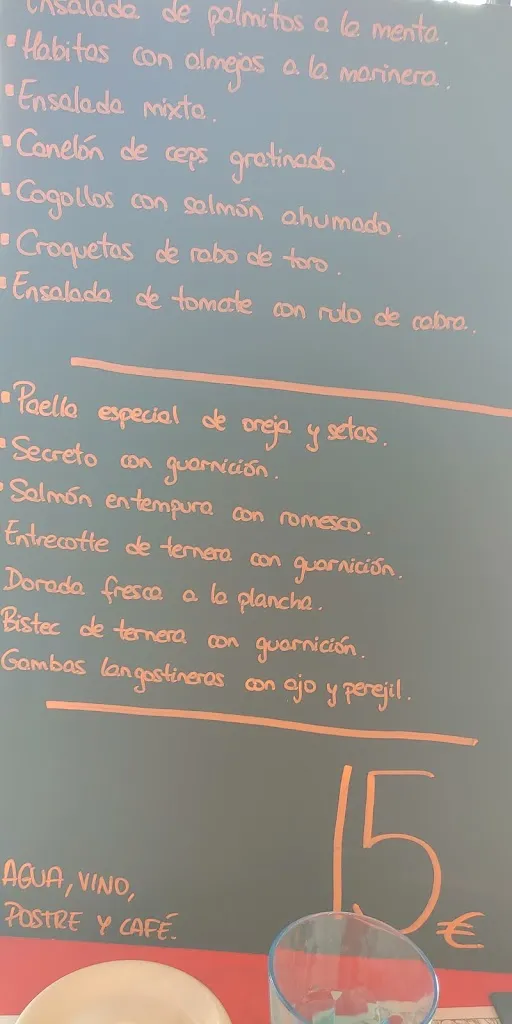 Ensalada de palmitos a la menta.
• Habitas con almejas a la marinera.
• Ensalada mixta.
• Canelón de ceps gratinado.
• Cogollos con salmón ahumado.
• Croquetas de rabo de toro.
• Ensalada de tomate con rulo de cabra.
• Paella especial de oreja y setas.
• Secreto con guarnición.
• Salmón en tempura con romesco.
Entrecotte de ternera con guarnición.
Dorada fresca a la plancha.
Bistec de ternera con guarnición.
Gambas langostineras con ajo y perejil.
15 €
AGUA, VINO,
POSTRE Y CAFÉ.